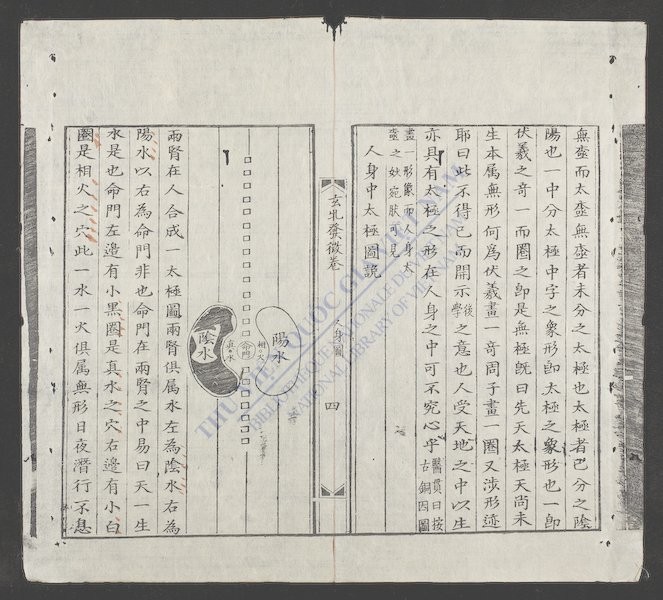 無極而太極無極者未分之太極也太極者已分之陰
陽也一中分太極中字之象形即太極之象形也一即
伏羲之奇一而圈之即是無極既曰先天太極天尚未
生本屬無形何為伏羲畫一奇周子畫一圈又涉形迹
耶曰此不得已而開示後學之意也人受天地之中以生
亦具有太極之形在人身之中可不究心乎醫貫曰按古銅因圖
畫一形象而人身太極之妙宛肰可見
人身中太極圖說
玄牝發微卷
人身圖
四
陽水
相火
命門
真水
陰水
兩腎在人合成一太極圖兩腎俱屬水左為陰水右為
陽水以右為命門非也命門在兩腎之中易曰天一生
水是也命門左邊有小黑圈是真水之穴右邊有小白
圈是相火之穴此一水一火俱屬無形日夜潛行不息
THƯ VIỆN QUỐC GIA VIỆT NAM
BIBLIOTHÈQUE NATIONALE DU VIETNAM
NATIONAL LIBRARY OF VIETNAM